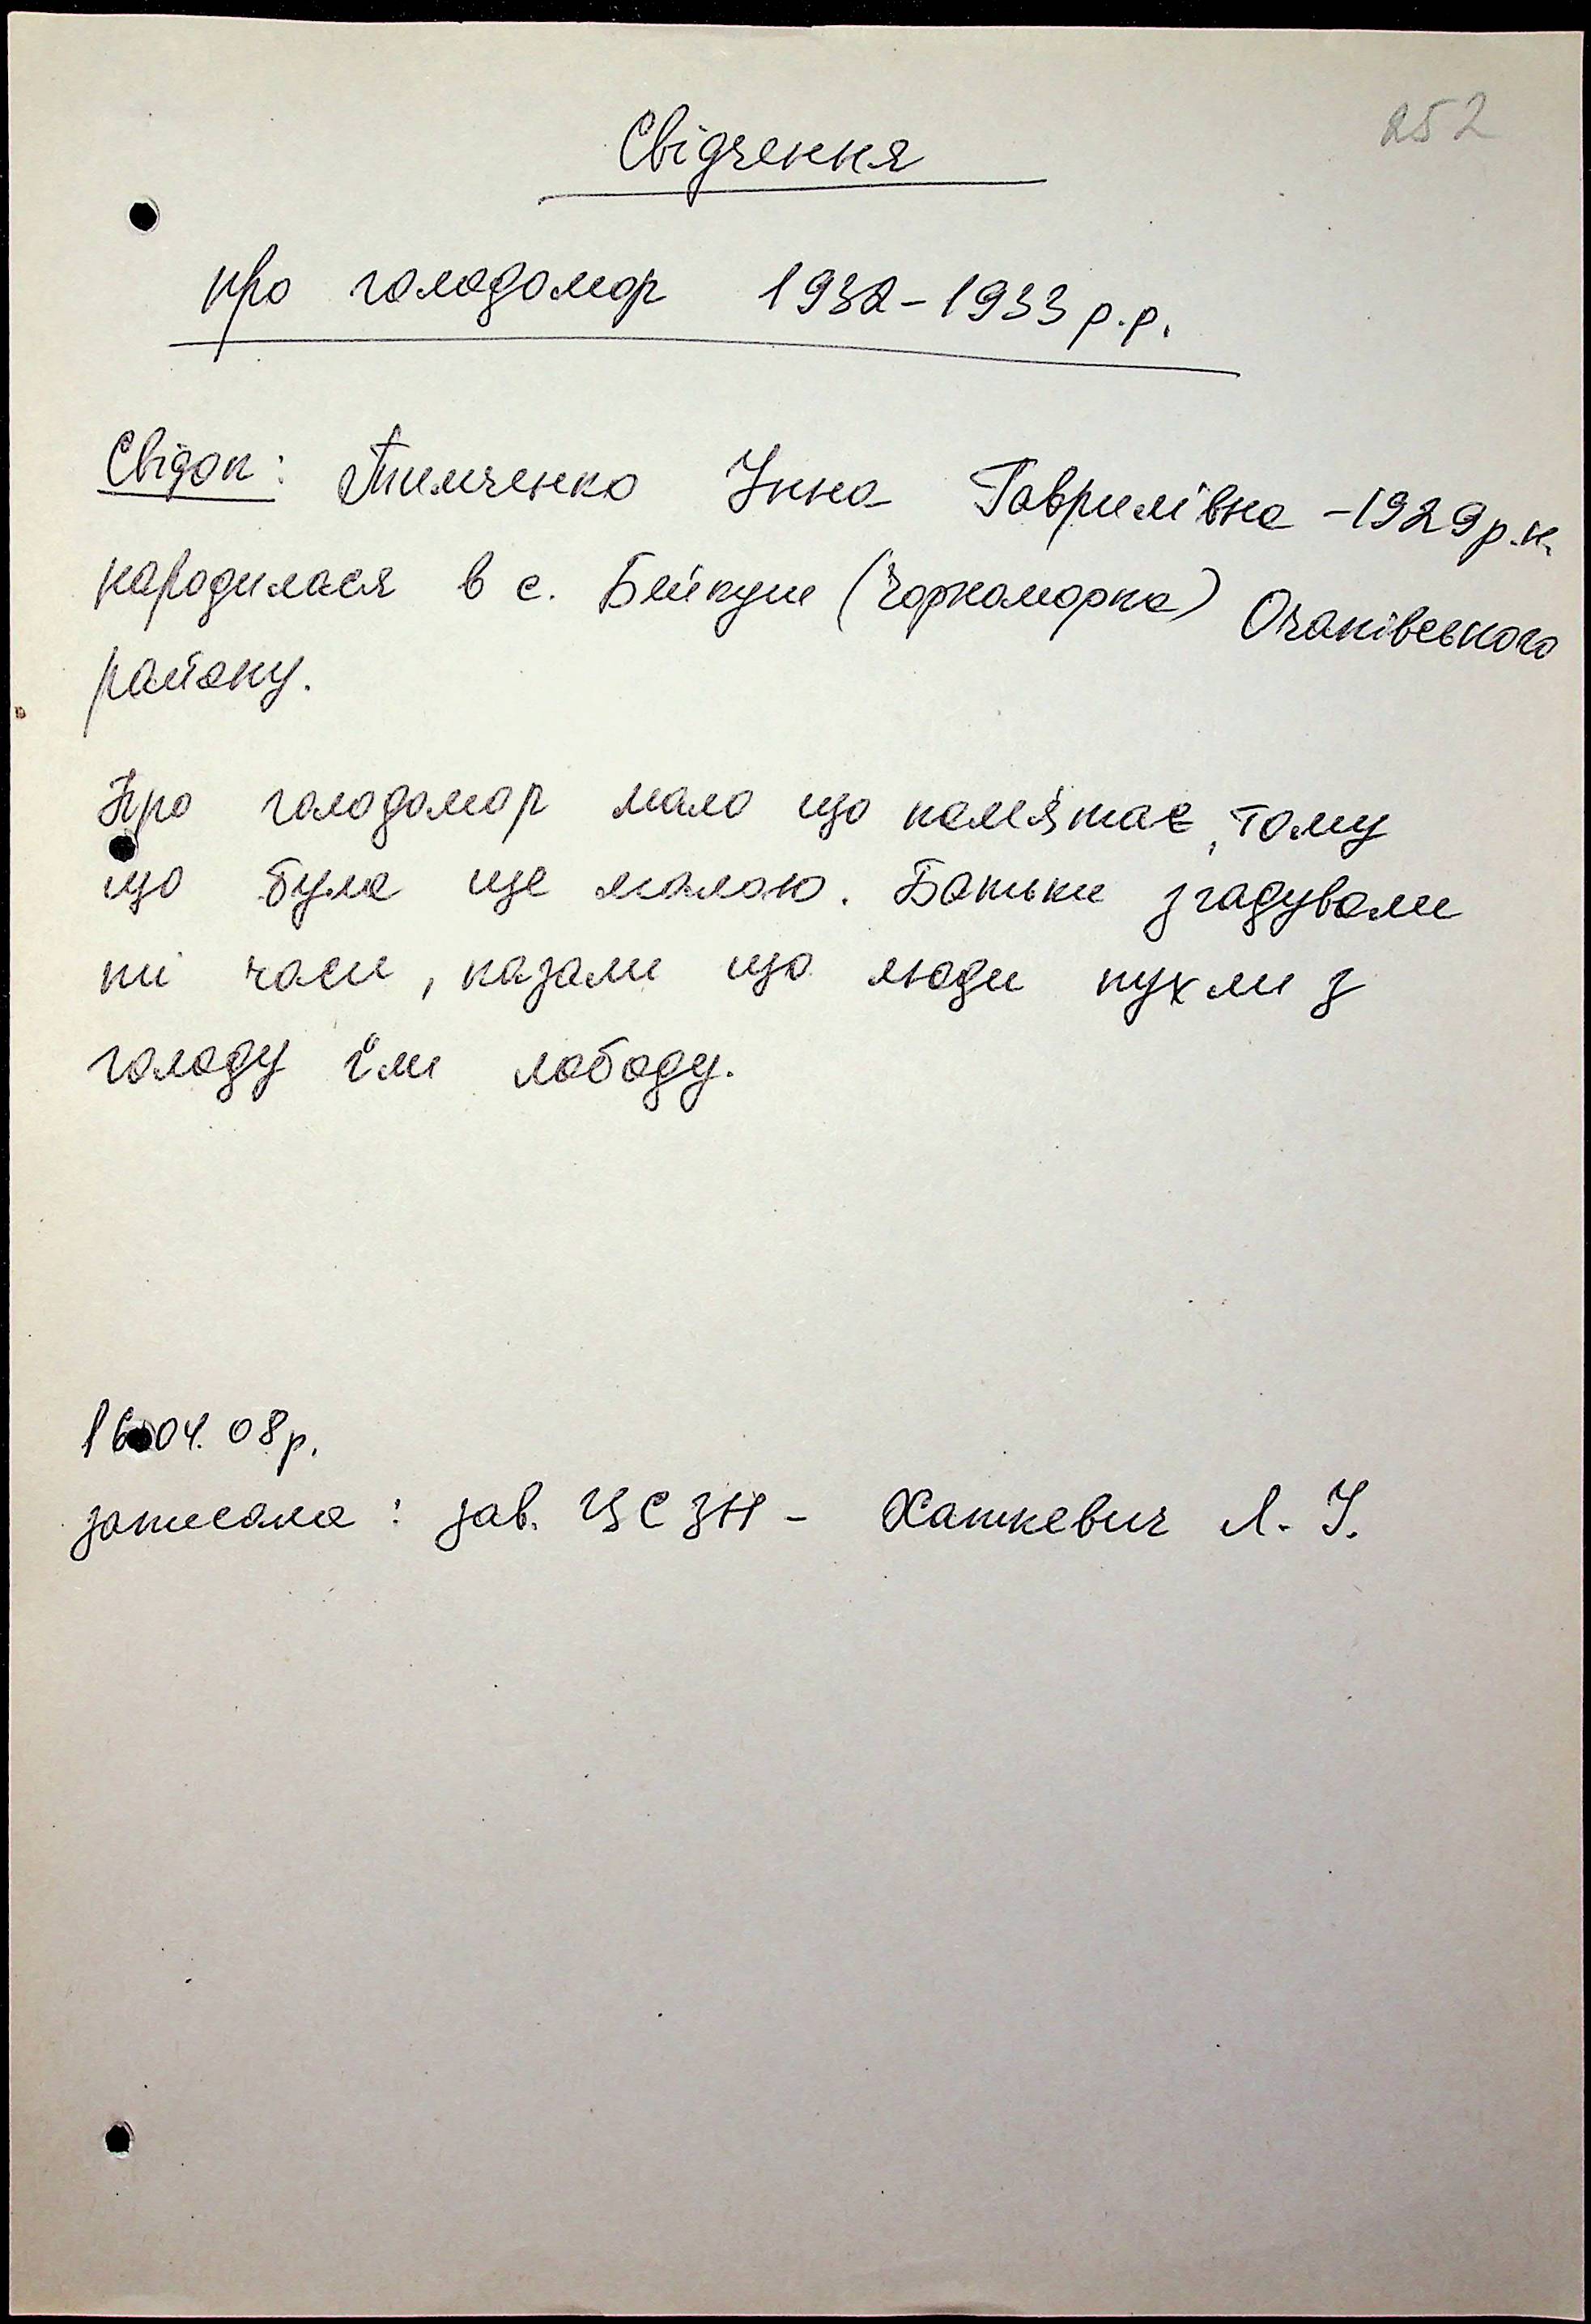 252
Свідчення
про голодомор 1932-1933 р.р.
Свідок: Тимченко Інна Гаврилівна - 1929 р.н.
народилася в с. Бейкуш (Чорноморка) Очаківського
району.
Про голодомор мало що пам'ятає, тому
що була ще малою. Батьки згадували
ті часи, казали що люди пухли з
голоду їли лободу.
16.04.08р.
записала: зав. ЦСЗН - Хаткевич Л. І.